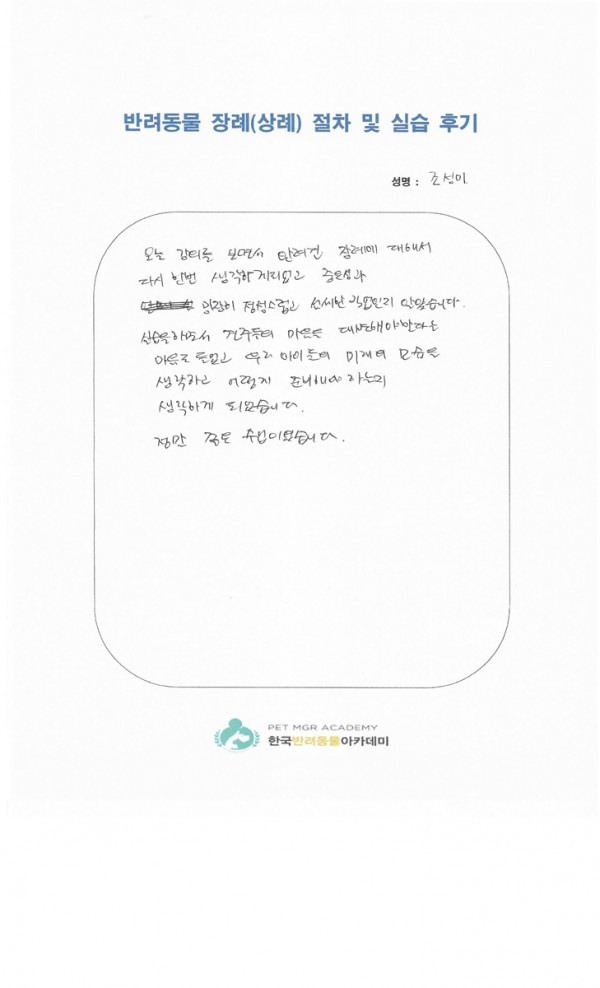 반려동물 장례(상례) 절차 및 실습 후기
성명 : 조성미
오늘 강의를 보면서 반려견 장례에 대해서
다시 한번 생각하게되었고 중요성과
얼마나 정성스럽고 섬세한 작업인지 알았습니다.
실습을하면서 견주들의 마음을 대변해야한다는
마음도 들었고 우리 아이들의 미래의 모습을
생각하고 어떻게 준비해야 하는지
생각하게 되었습니다.
정말 좋은 수업이었습니다.
PET MGR ACADEMY
한국반려동물아카데미